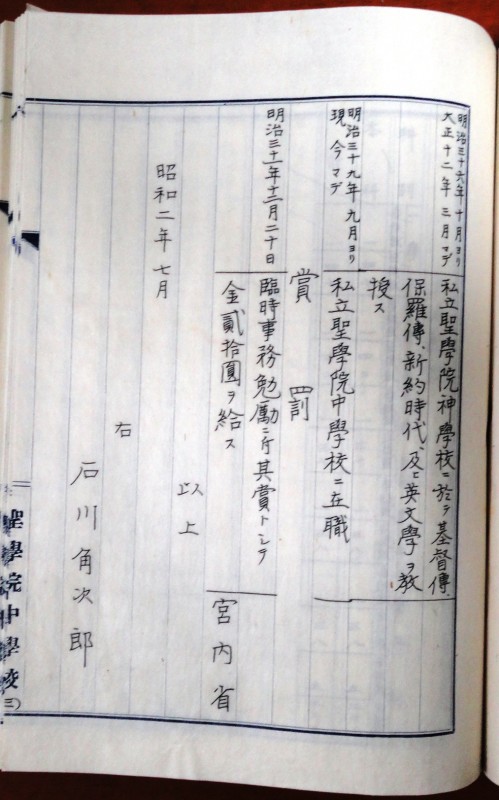 明治三十六年十月ヨリ
大正十二年三月マデ
私立聖學院神學校ニ於テ基督傳、
保羅傳、新約時代、及ビ英文學ヲ教
授ス
明治三十九年九月ヨリ
現今マデ
私立聖學院中學校ニ在職
賞罰
明治三十一年十二月二十日
臨時事務勉勵ニ付其賞トシテ
金貳拾圓ヲ給ス
宮内省
以上
昭和二年七月
右
石川角次郎
聖學院中學校
(三)